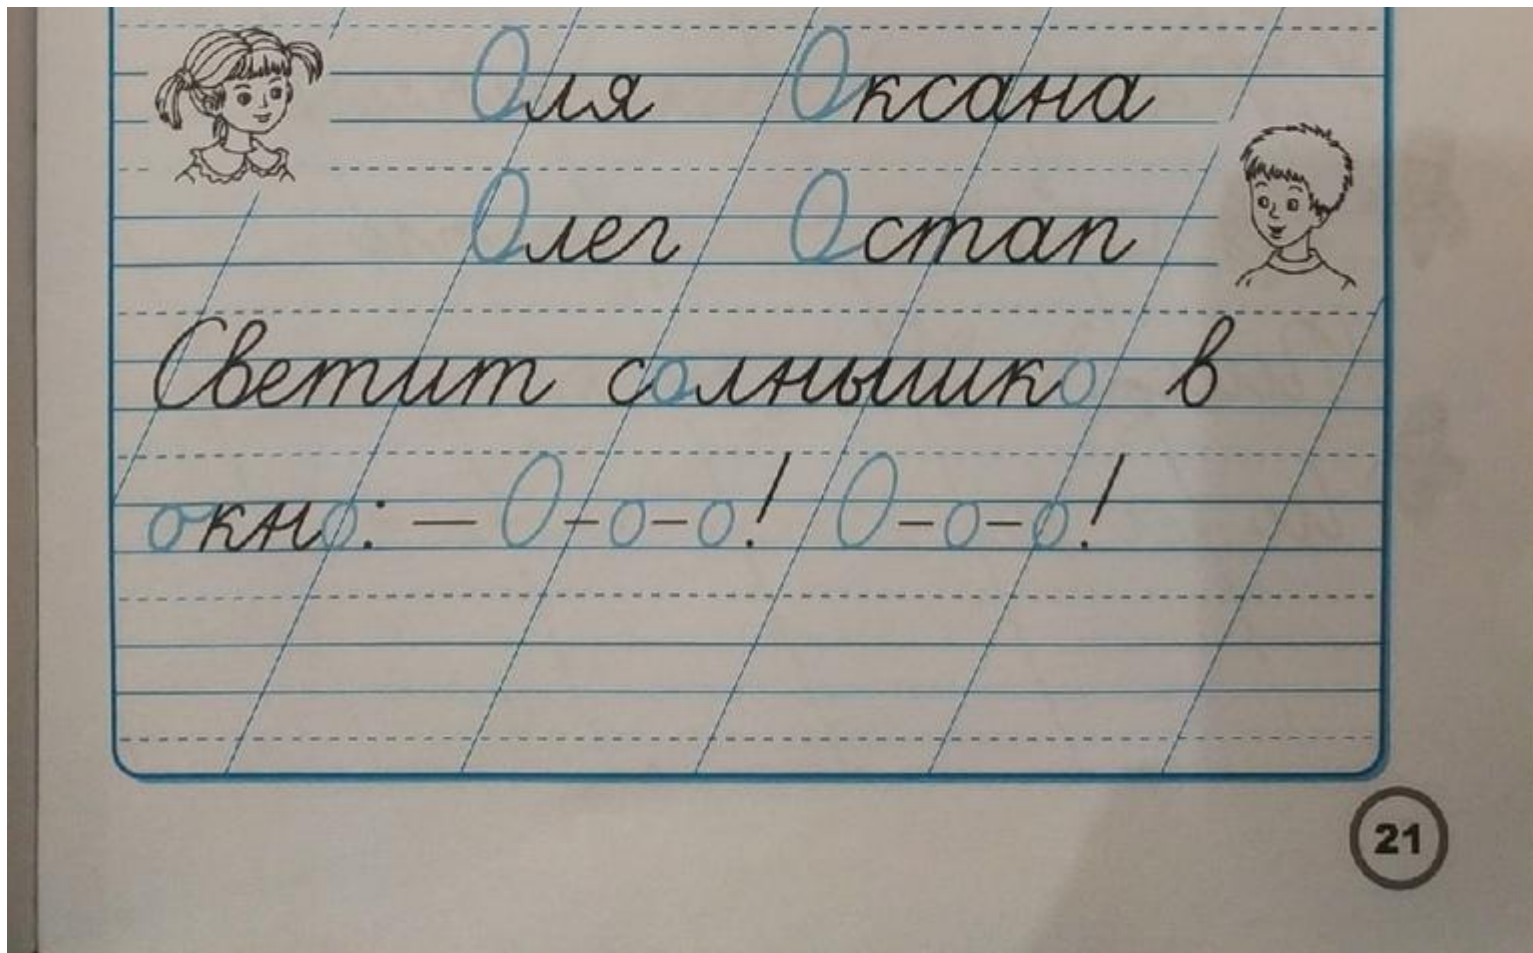 Оля Оксана
Олег Остап
Светит солнышко в
окно: — О-о-о! О-о-о!
21